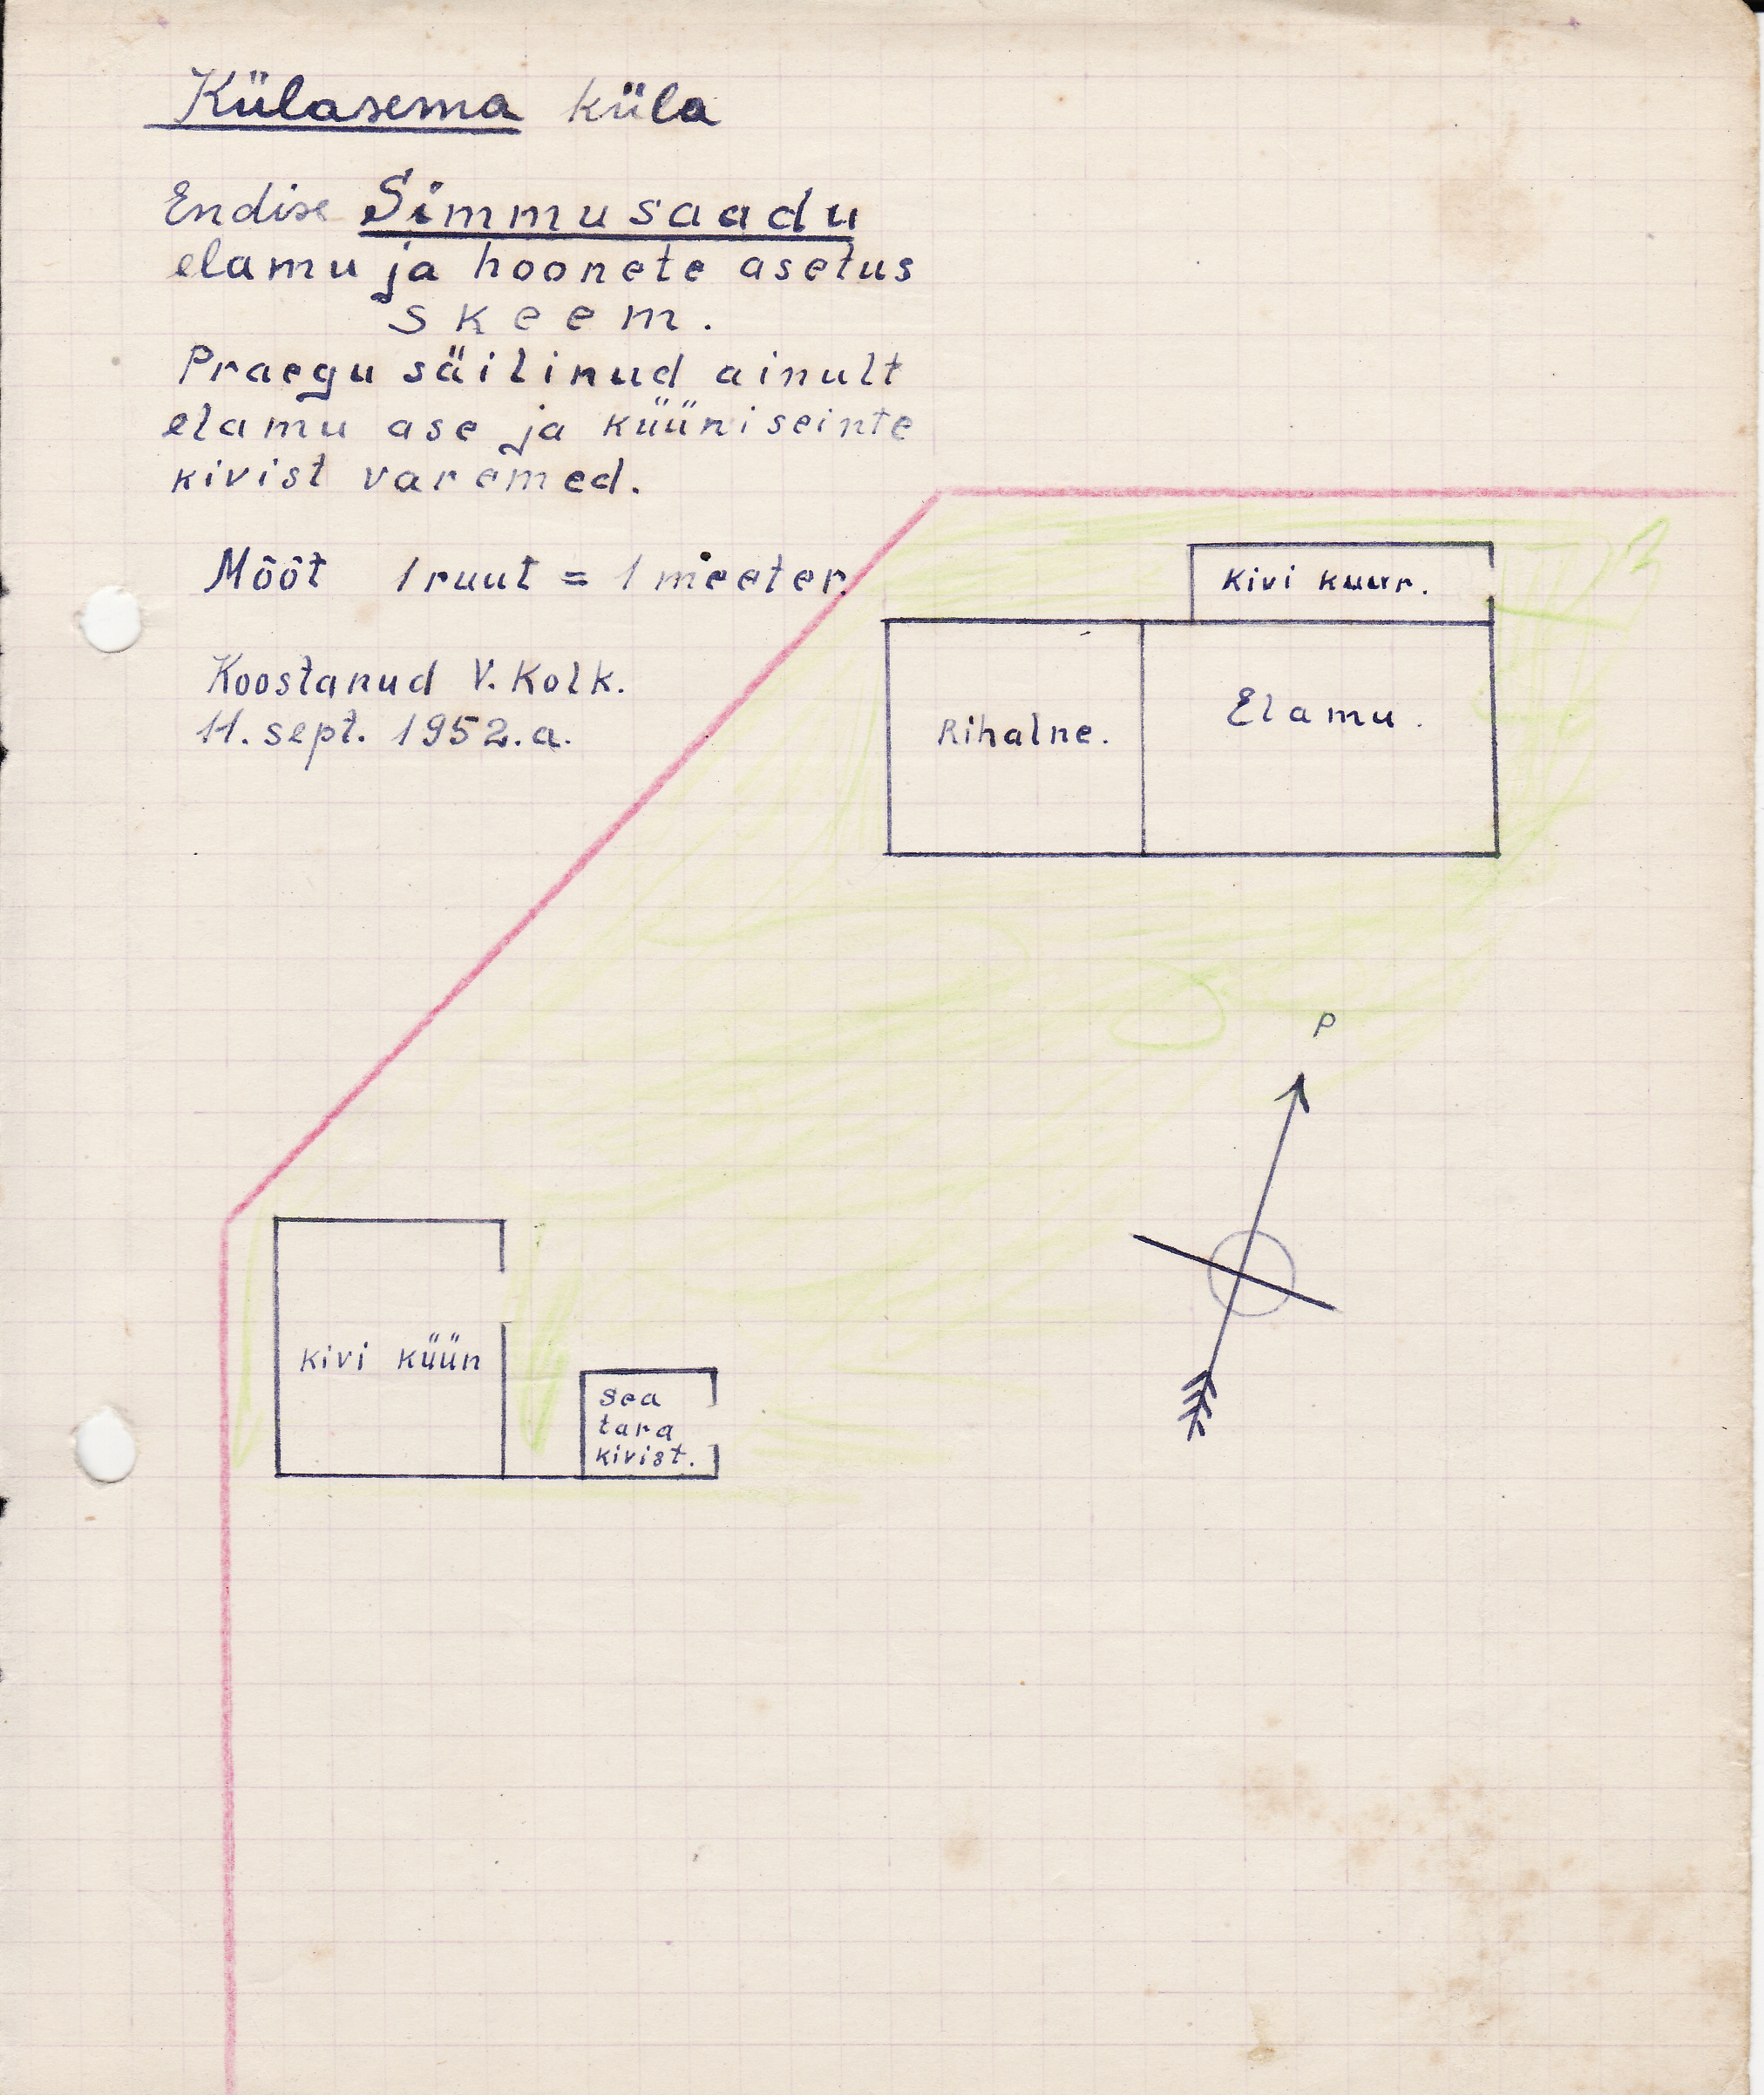 Külasema küla
Endise Simmusaadu
elamu ja hoonete asetus
skeem.
Praegu säilinud ainult
elamu ase ja küüni seinte
kivist varemed.
Mõõt 1 ruut = 1 meeter.
Koostanud V. Kolk.
11. sept. 1952.a.
Kivi kuur.
Rihalne.
Elamu.
P
Kivi küün
Sea
tara
kivist.